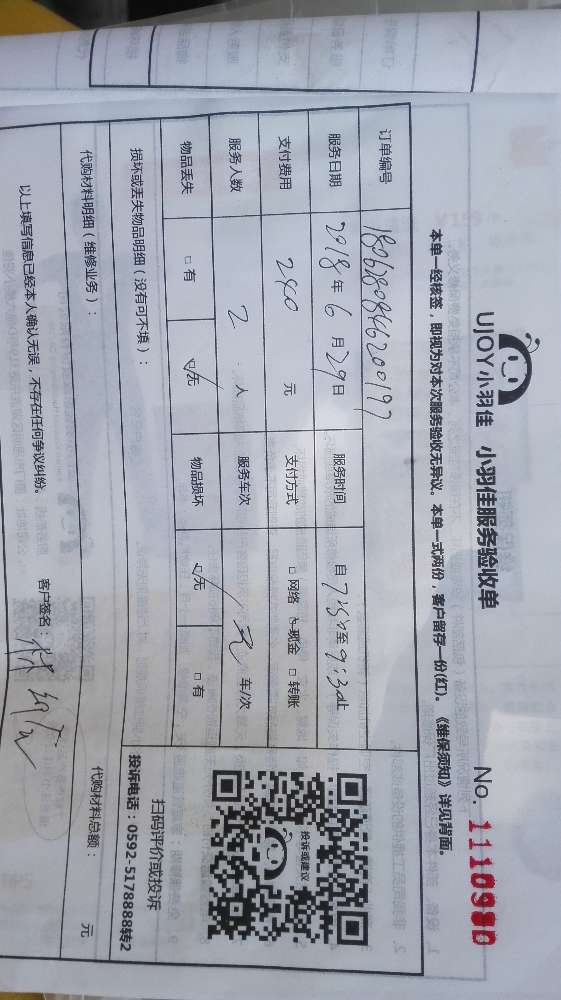 UJOY小羽佳 小羽佳服务验收单
No. 1110980
本单一经核签，即视为对本次服务验收无异议。本单一式两份，客户留存一份(红)。《维保须知》详见背面。
订单编号 180628084620019?
服务日期 2018年6月29日 服务时间 自7:50至9:30止
支付费用 240元 支付方式 □网络 ☑现金 □转账
服务人数 2人 服务车次 / 车/次
物品丢失 □有 ☑无 物品损坏 ☑无 □有
损坏或丢失物品明细（没有可不填）：
投诉或建议
扫码评价或投诉
投诉电话：0592-5178888转2
代购材料明细（维修业务）： 代购材料总额： 元
以上填写信息已经本人确认无误，不存在任何争议纠纷。 客户签名：